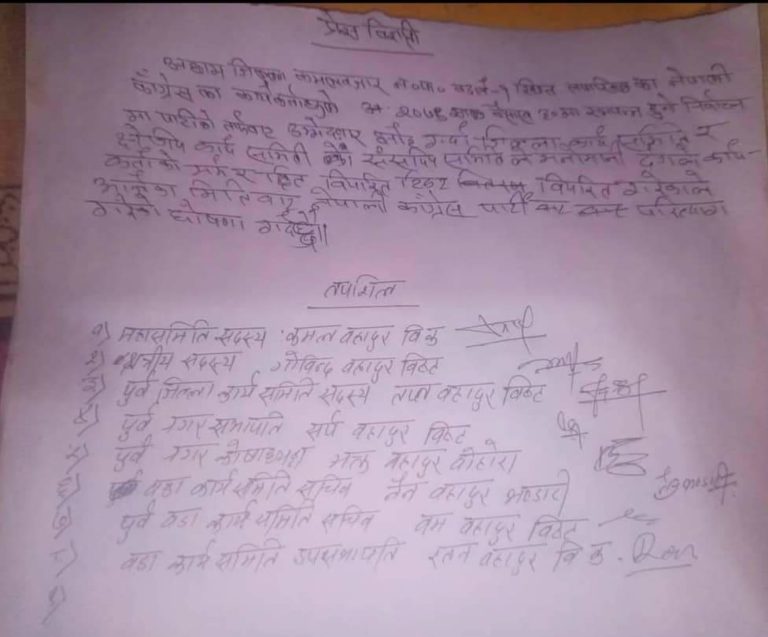 प्रेस विज्ञप्ती
अछाम जिल्लाका कमलबजार न.पा. वडा नं-१ स्थित का नेपाली
काँग्रेस का कार्यकर्ताहरुले २०७४ साल बैशाख ३१ मा सम्पन्न हुने निर्वाचन
मा पार्टीको तर्फबाट उम्मेदवार छनोट गर्दा जिल्ला कार्य समिति र
क्षेत्रीय कार्य समिती को संसदिय समिति ले मनोमानी ढंगले कार्य-
कर्ताको विपरित टिकट वितरण विपरित गरेकोले
आजैका मिति बाट नेपाली काँग्रेस पार्टी परित्याग
गरेको घोषणा गर्दछौं।।
तपशिल
१) महासमिति सदस्य कमल बहादुर वि.क
२) क्षेत्रीय सदस्य गोविन्द बहादुर विष्ट
३) पुर्व जिल्ला कार्य समिति सदस्य बहादुर विष्ट
४) पुर्व नगर सभापति सर्प बहादुर विष्ट
५) पुर्व नगर कोषाध्यक्ष भक्त बहादुर बोहोरा
६) वडा कार्य समिति सचिव नैन बहादुर भण्डारी
७) पुर्व वडा कार्य समिति सचिव बम बहादुर विष्ट
८) वडा कार्य समिति उपसभापति रतन बहादुर वि.क.
९)